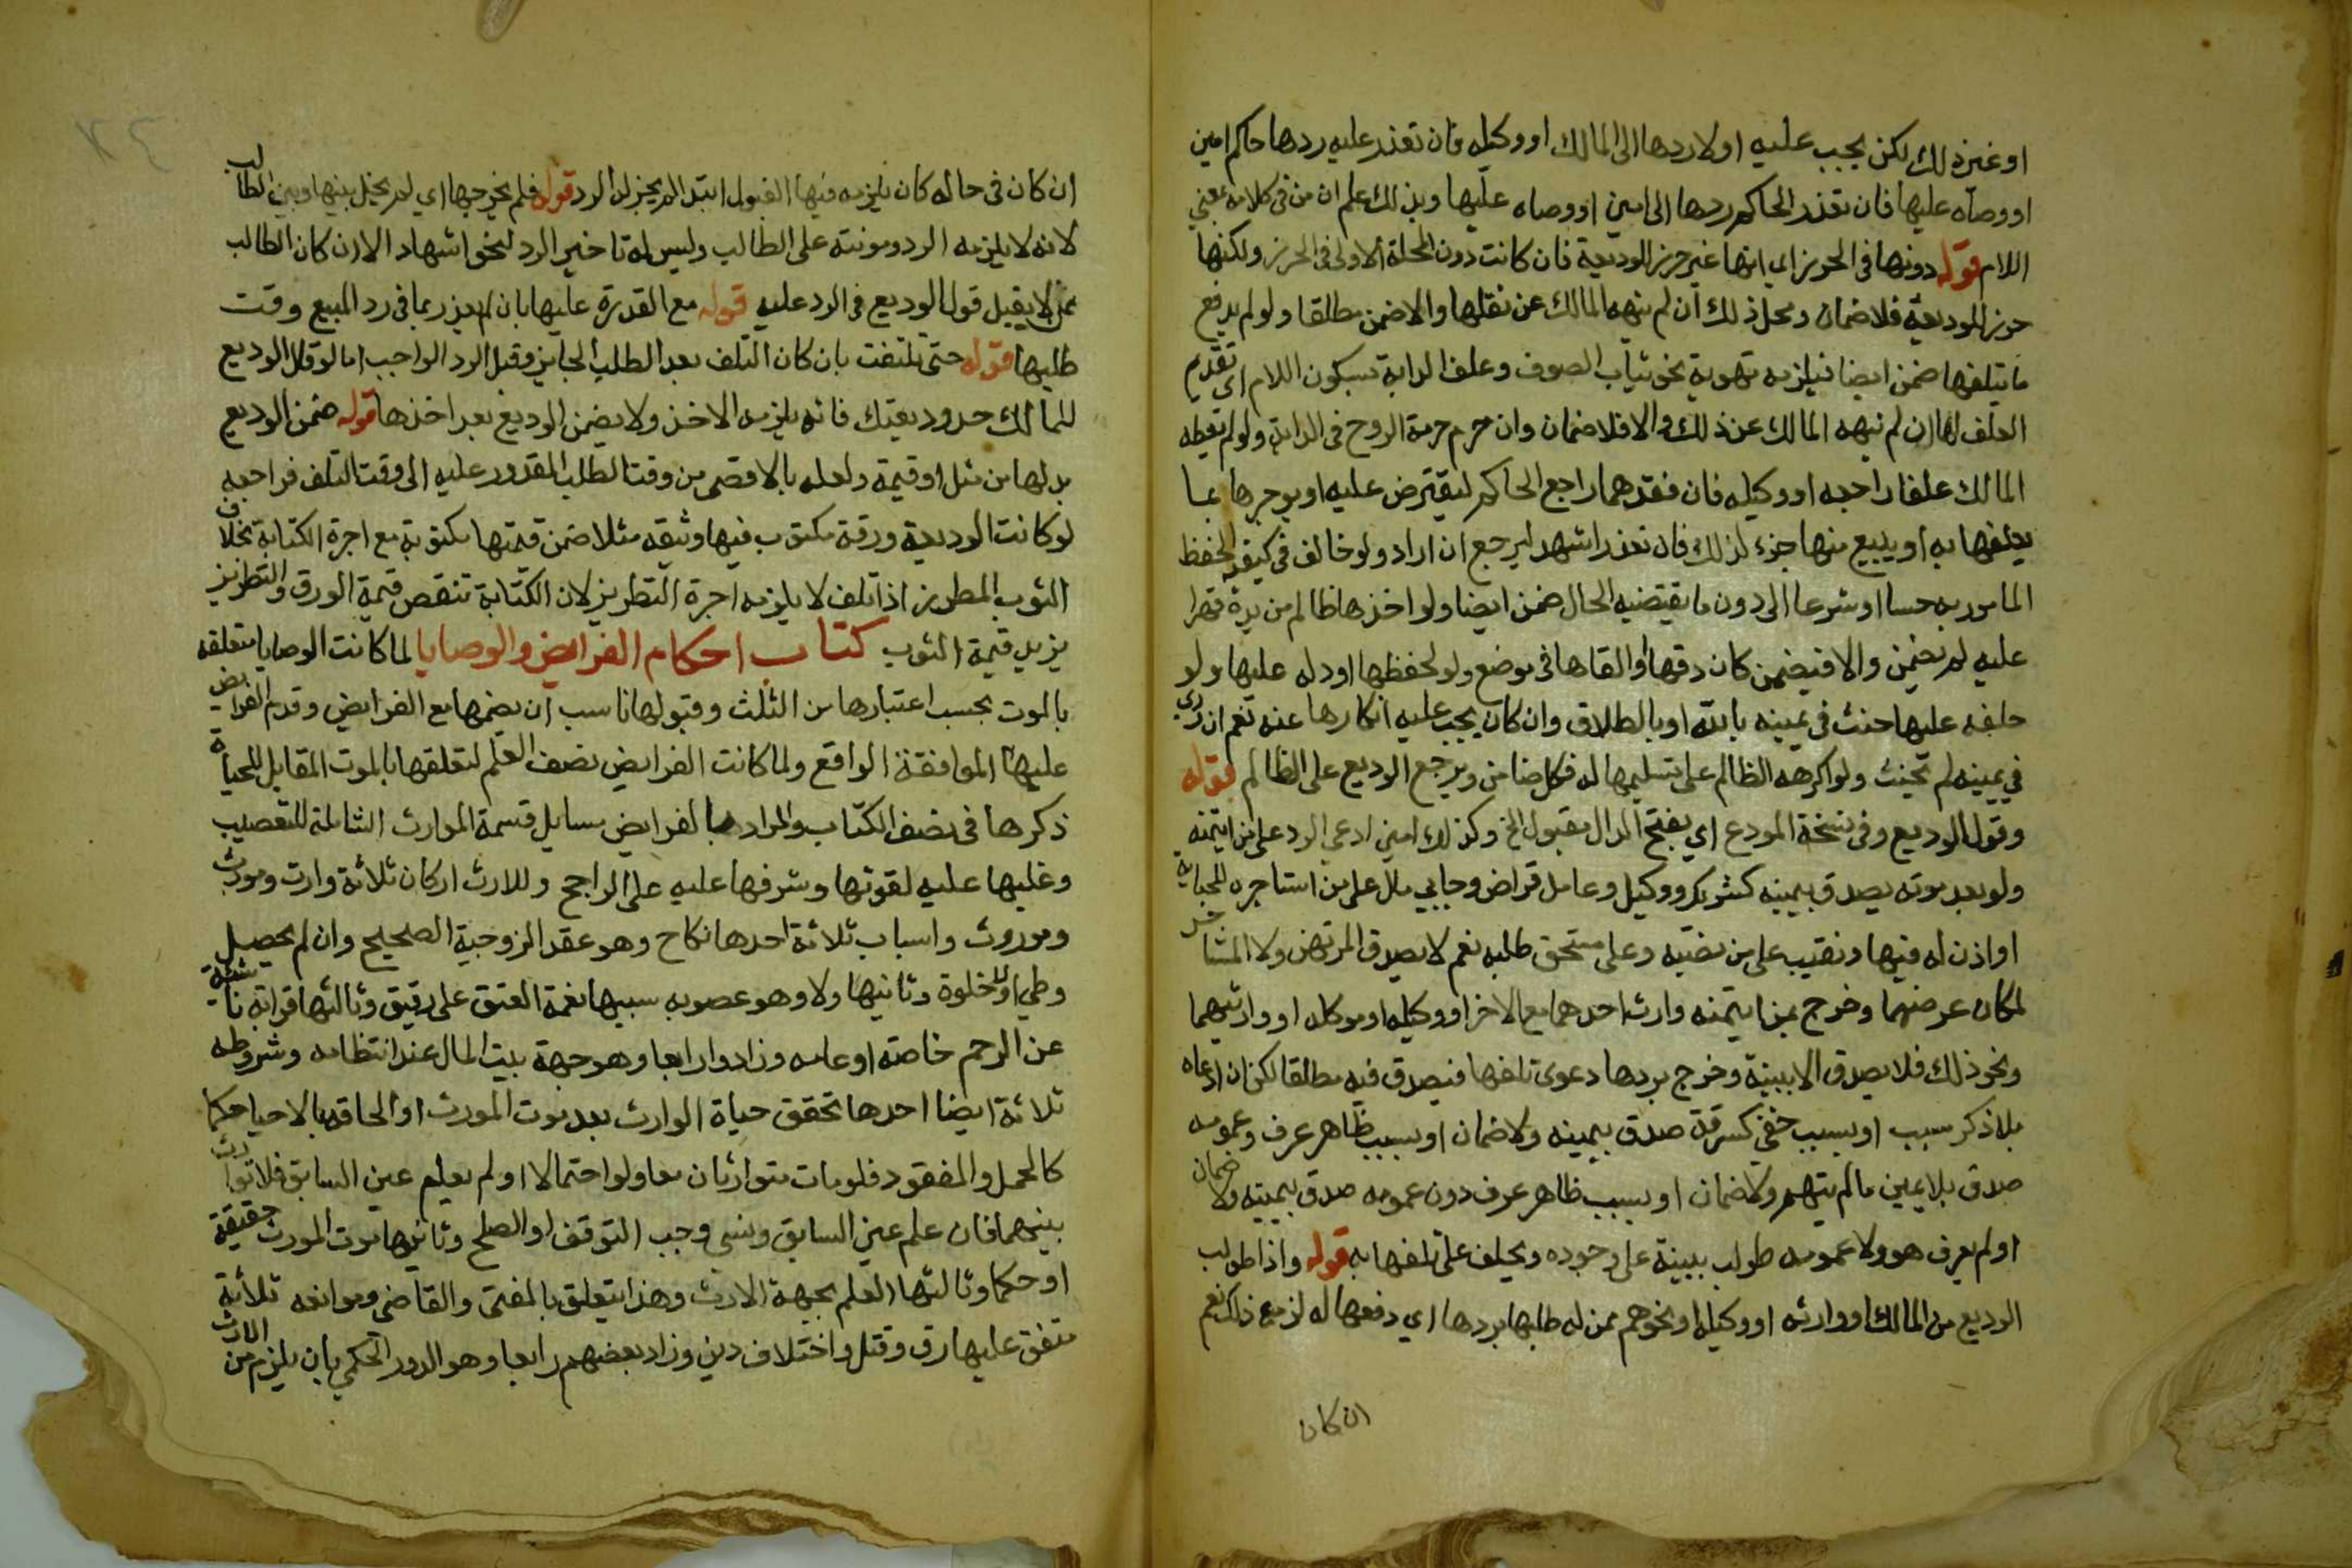 او غير ذلك لكن يجب عليه اولا ردها الى المالك او وكيله فان تعذر عليه ردها حاكم امين
او وصاه عليها فان تعذر الحاكم ردها الى امين او وصاه عليها وبذلك علم ان من في كلامه بمعني
اللام قوله دونها في الحرز اي انها غير حرز الوديعة فان كانت دون المحلة الاولى في الحرز ولكنها
حرز الوديعة فلا ضمان ومحل ذلك ان لم ينهه المالك عن نقلها والا ضمن مطلقا ولو لم يدفع
ما يتلفها ضمن ايضا فيلزمه تهوية نحو ثياب الصوف وعلف الدابة بسكون اللام اي تقديم
العلف لها ان لم ينهه المالك عن ذلك والا فلا ضمان وان حرم حرمة الروح في الدابة ولو لم يعطه
المالك علفا راجعه او وكيله فان فقدهما راجع الحاكم ليقترض عليه او يوجرها بما
يعلفها به او يبيع منها جزء لذلك فان تعذر اشهد ليرجع ان اراد ولو خالف في كيفية الحفظ
المامور به حسا او شرعا الى دون ما يقتضيه الحال ضمن ايضا ولو اخذها ظالم من يده قهرا
عليه لم يضمن والا فيضمن كان دفنها او القاها في موضع ولو لحفظها او دله عليها ولو
حلفه عليها حنث في يمينه بالله او بالطلاق وان كان يجب عليه انكارها عنه نعم ان ورى
في يمينه لم يحنث ولو اكرهه الظالم على تسليمها له فكل ضامن ويرجع الوديع على الظالم قوله
وقول الوديع وفي نسخة المودع اي بفتح الدال مقبول الخ وكذلك امين ادعى الرد على من ايتمنه
ولو بعد موته يصدق بيمينه كشريك ووكيل وعامل قراض وجابي مال على من استاجره للجباية
او اذن له فيها ونقيب على من نصبه وعلى مستحق طلبه نعم لا يصدق المرتهن ولا المستاجر
لمكان غرضهما وخرج بمن ايتمنه وارث احدهما مع الاخر او وكيله او موكله او وارثيهما
ونحو ذلك فلا يصدق الا ببينة وخرج بردها دعوى تلفها فيصدق فيه مطلقا لكن ان ادعاه
بلا ذكر سبب او بسبب خفي كسرقة صدق بيمينه ولا ضمان او بسبب ظاهر عرف وعمومه
صدق بلا يمين ما لم يتهم ولا ضمان او بسبب ظاهر عرف دون عمومه صدق بيمينه ولا ضمان
او لم يعرف هو ولا عمومه طولب ببينة على وجوده ويحلف على تلفها به قوله واذا طولب
الوديع من المالك او وارثه او وكيله او نحوهم ممن له طلبها بردها اي دفعها له لزمه ذلك نعم
ان كان
ان كان في حالة كان يلزمه فيها القبول ابتدا لم يجز له الرد قوله فلم يخرجها اي لم يخل بينها وبين الطالب
لانه لا يلزمه الرد ومونته على الطالب وليس له تاخير الرد لنحو اشهاد الا ان كان الطالب
ممن لا يقبل قول الوديع في الرد عليه قوله مع القدرة عليها بان لم يعذر بما في رد المبيع وقت
طلبها قوله حتى تلفت بان كان التلف بعد الطلب الجايز وقبل الرد الواجب اما لو قال الوديع
للمالك خذ وديعتك فانه يلزمه الاخذ ولا يضمن الوديع بعد اخذها قوله ضمن الوديع
بدلها من مثل او قيمة ولعله بالاقصى من وقت الطلب المقدور عليه الى وقت التلف فراجعه
لو كانت الوديعة ورقة مكتوب فيها وثيقة مثلا ضمن قيمتها مكتوبة مع اجرة الكتابة بخلاف
الثوب المطرز اذا تلف لا يلزمه اجرة التطريز لان الكتابة تنقص قيمة الورق والتطريز
يزيد قيمة الثوب كتاب احكام الفرايض والوصايا لما كانت الوصايا متعلقة
بالموت بحسب اعتبارها من الثلث وقبولها ناسب ان يضمها مع الفرايض وقدم الفرايض
عليها الموافقة الواقع ولما كانت الفرايض نصف العلم لتعلقها بالموت المقابل للحياة
ذكرها في نصف الكتاب والمراد بالفرايض مسايل قسمة الموارث الشاملة للتعصيب
وغلبها عليه لقوتها وشرفها عليه على الراجح وللارث اركان ثلاثة وارث ومورث
وموروث واسباب ثلاثة احدها نكاح وهو عقد الزوجية الصحيح وان لم يحصل
وطي او لخلوة وثانيها ولا وهو عصوبة سببها نعمة العتق على رقيق وثالثها قرابة ناشئة
عن الرحم خاصة او عامه وزادوا رابعا وهو جهة بيت المال عند انتظامه وشروطه
ثلاثة ايضا احدها تحقق حياة الوارث بعد موت المورث او الحاقه بالاحيا حكما
كالحمل والمفقود فلو مات متوارثان معا ولو احتمالا او لم يعلم عين السابق فلا توارث
بينهما فان علم عين السابق ونسي وجب التوقف او الصلح وثانيها موت المورث حقيقة
او حكما وثالثها العلم بجهة الارث وهذا يتعلق بالمفتي والقاضي وموانعه ثلاثة
متفق عليها رق وقتل واختلاف دين وزاد بعضهم رابعا وهو الدور الحكمي بان يلزم من الارث